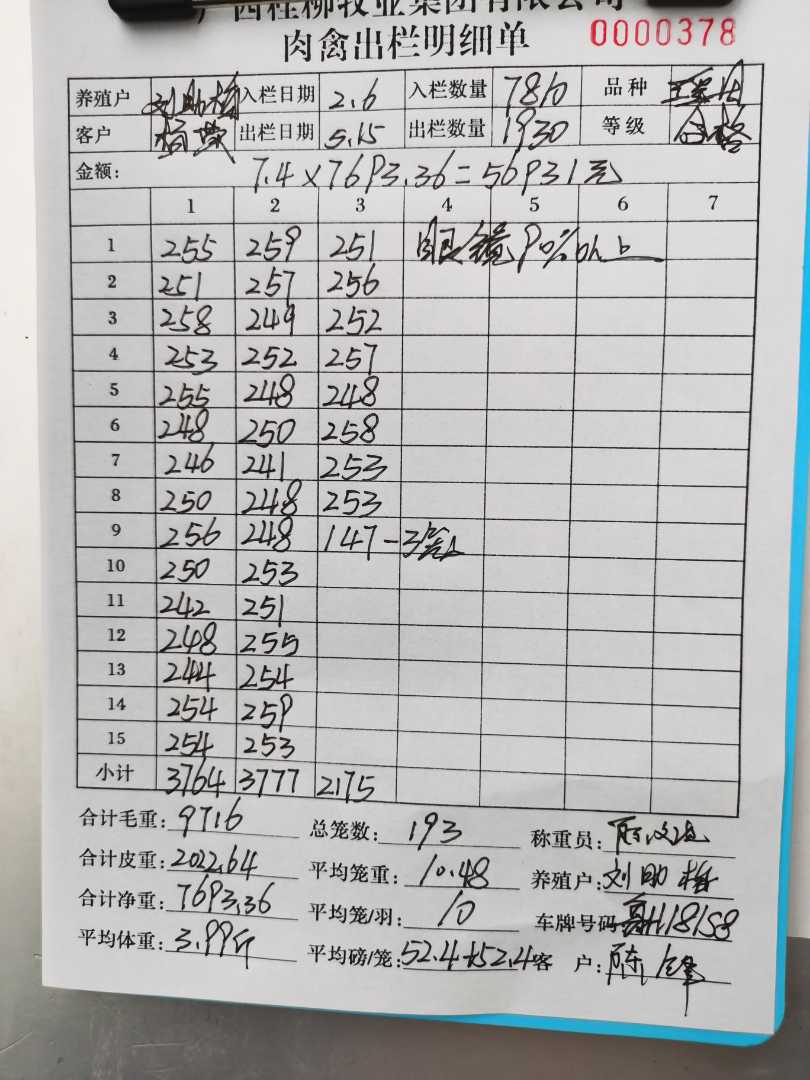 广西桂柳牧业集团有限公司
肉禽出栏明细单 0000378
养殖户 刘助梅 入栏日期 2.6 入栏数量 7810 品种
客户 杨 出栏日期 5.15 出栏数量 1930 等级 合格
金额: 7.4×7693.36=56931元
1 2 3 4 5 6 7
1 255 259 251 眼镜90%以上
2 251 257 256
3 258 249 252
4 253 252 257
5 255 248 248
6 248 250 258
7 246 241 253
8 250 248 253
9 256 248 147-3笼
10 250 253
11 242 251
12 248 255
13 244 254
14 254 259
15 254 253
小计 3764 3777 2175
合计毛重: 9716 总笼数: 193 称重员:
合计皮重: 2022.64 平均笼重: 10.48 养殖户: 刘助梅
合计净重: 7693.36 平均笼/羽: 10 车牌号码 H18158
平均体重: 3.99斤 平均磅/笼: 52.4+52.4 客 户: 陈锋